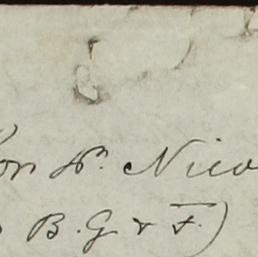 on W. Nico
B. G & F.)